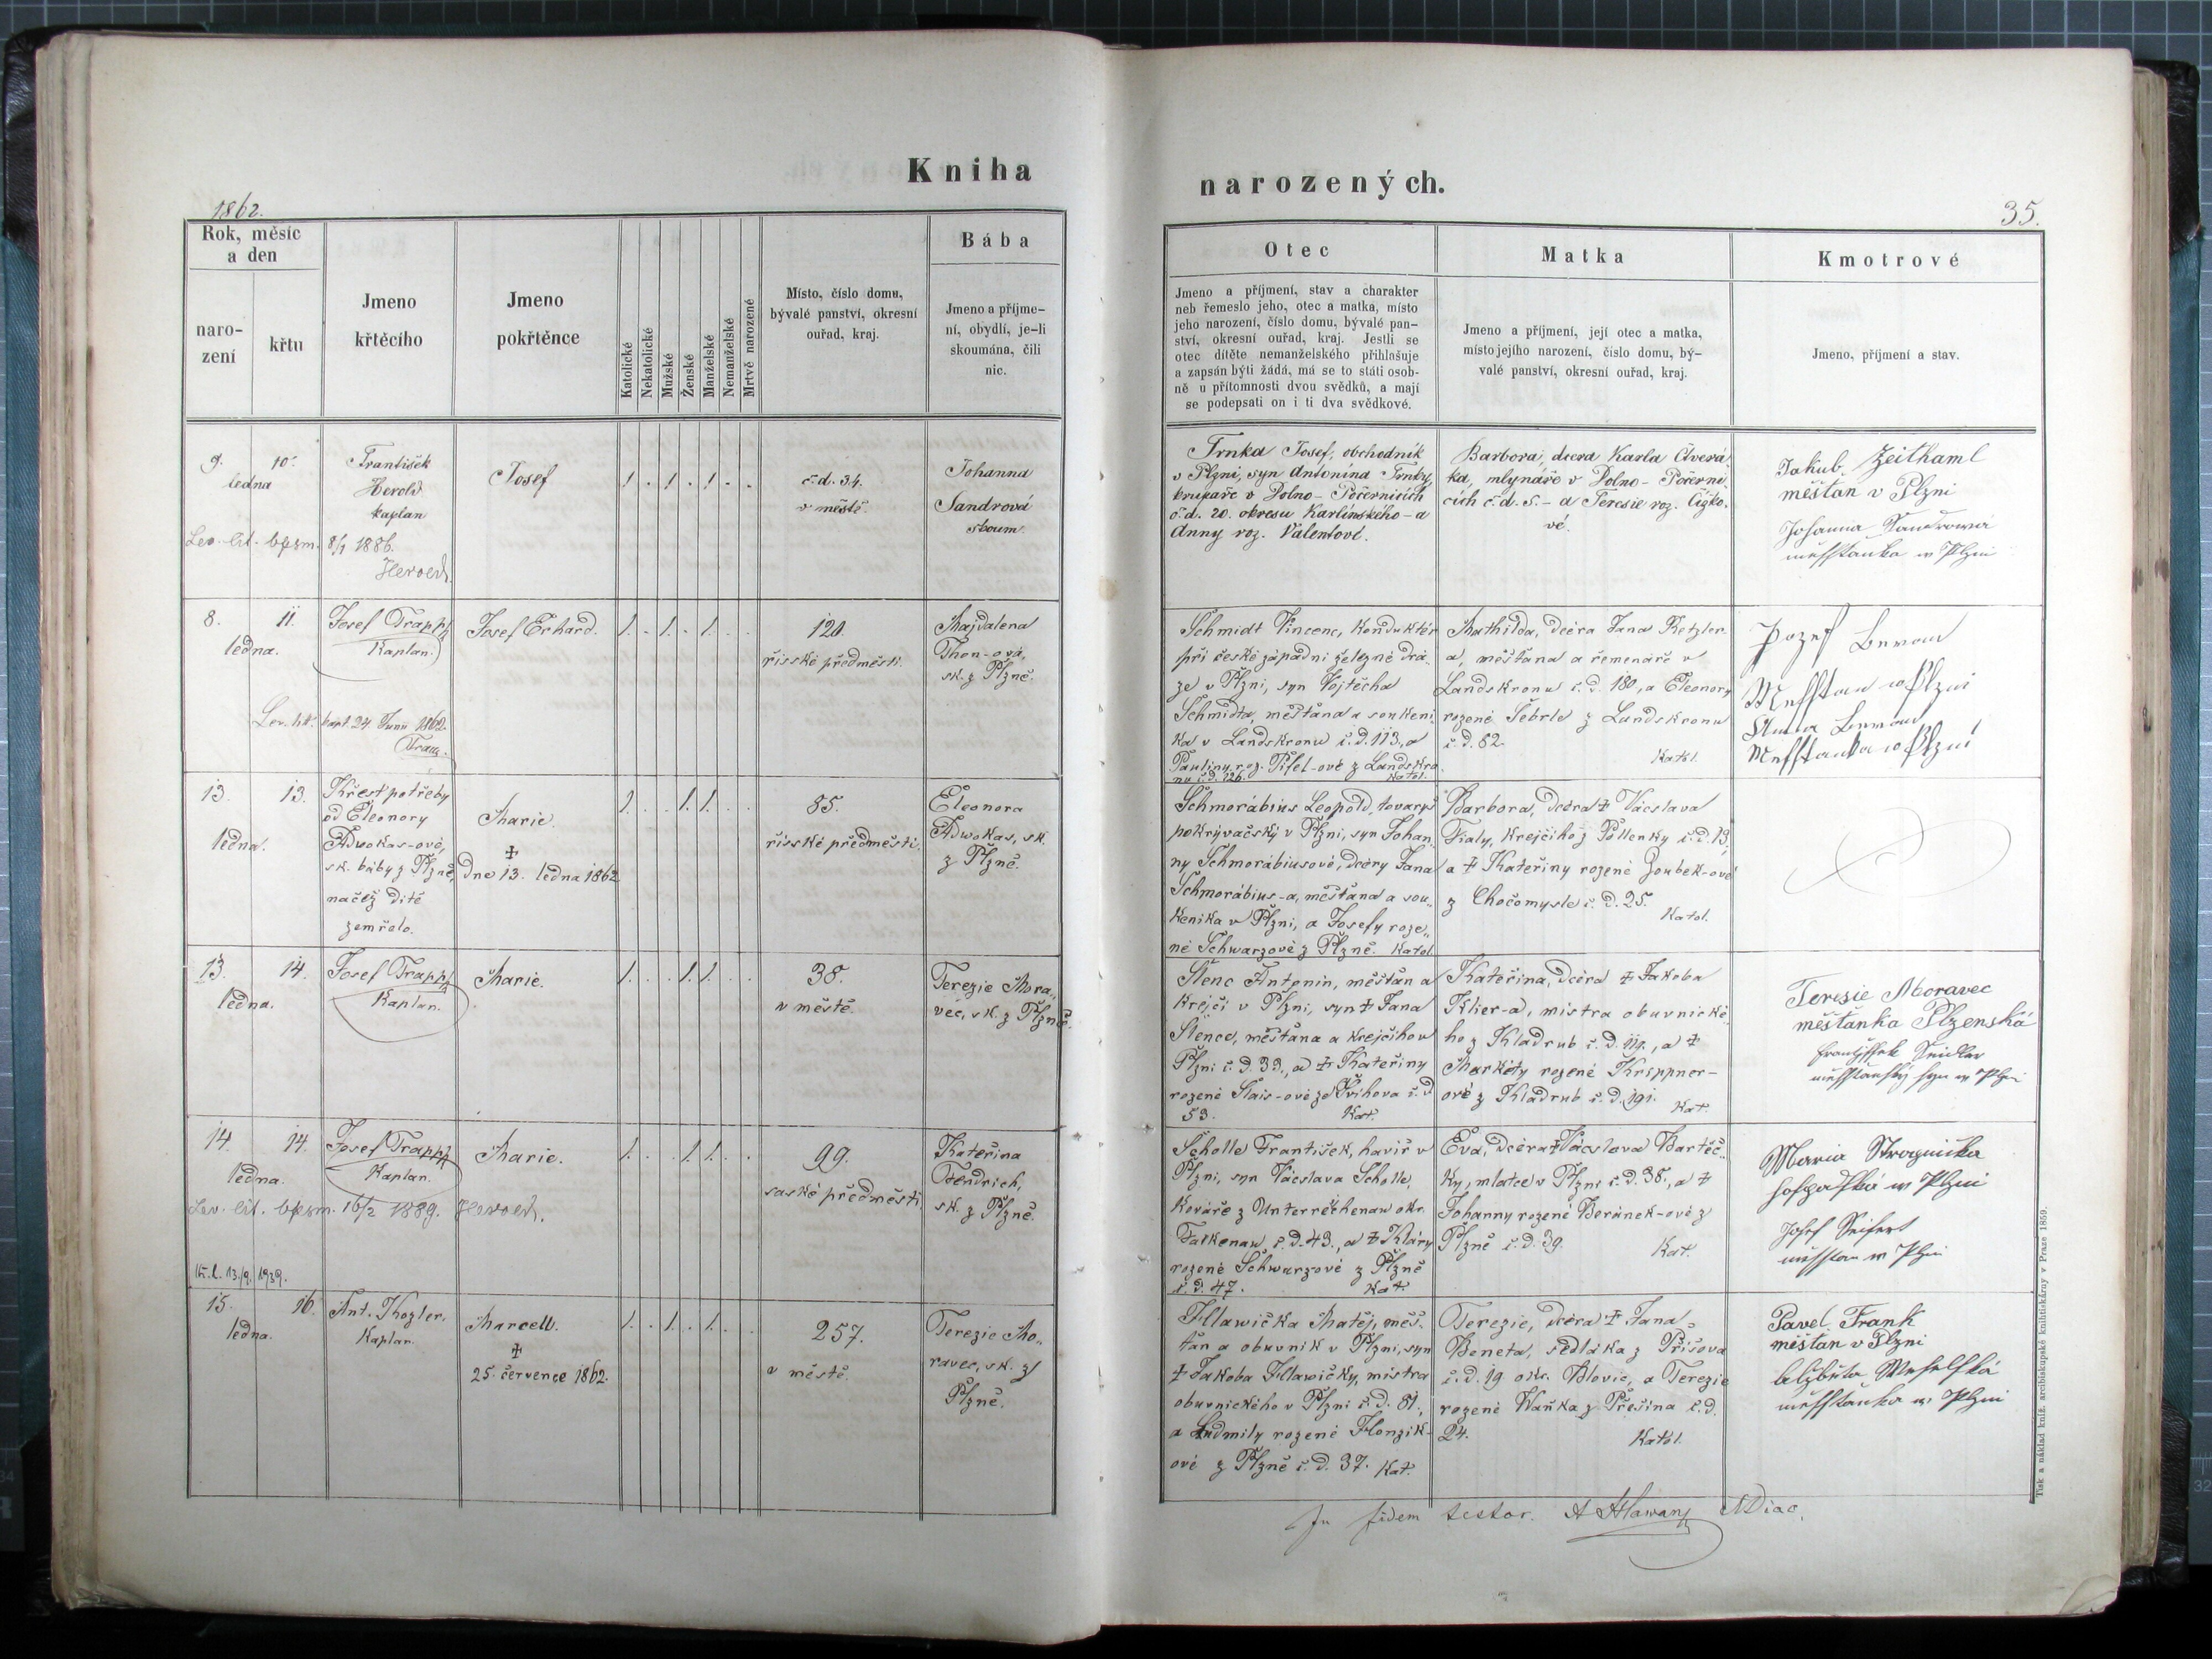 Kniha
narozených.
1862.
35.
Rok, měsíc
a den
naro-
zení
křtu
Jmeno
křtěcího
Jmeno
pokřtěnce
Katolické
Nekatolické
Mužské
Ženské
Manželské
Nemanželské
Mrtvě narozené
Místo, číslo domu,
bývalé panství, okresní
ouřad, kraj.
Bába
Jmeno a příjme-
ní, obydlí, je-li
skoumána, čili
nic.
Otec
Jmeno a příjmení, stav a charakter
neb řemeslo jeho, otec a matka, místo
jeho narození, číslo domu, bývalé pan-
ství, okresní ouřad, kraj. Jestli se
otec dítěte nemanželského přihlašuje
a zapsán býti žádá, má se to státi osob-
ně u přítomnosti dvou svědků, a mají
se podepsati on i ti dva svědkové.
Matka
Jmeno a příjmení, její otec a matka,
místo jejího narození, číslo domu, bý-
valé panství, okresní ouřad, kraj.
Kmotrové
Jmeno, příjmení a stav.
9. 10.
ledna
František
Herold
kaplan
Lev. lit. bpsm. 8/1 1886.
Herold.
Josef
1 . 1 . 1 . .
č. d. 34.
v městě.
Johanna
Sandrová
skoum.
Trnka Josef, obchodník
v Plzni, syn Antonína Trnky,
krupaře v Dolno-Počernicích
č. d. 20. okresu Karlínského - a
Anny roz. Valentové.
Barbora, dcera Karla Čtverá
ka, mlynáře v Dolno-Počerni
cích č. d. 5. - a Teresie roz. Čížko.
vé.
Jakub Zeithaml
měštan v Plzni
Johanna Sandrowá
měsstanka w Plzni
8. 11.
ledna.
Josef Trappl
Kaplan.
Lev. lit. bapt. 24 Junii 1862.
Josef Erhard.
1. . 1. . 1. . .
120.
řísské předměstí.
Majdalena
Thon-ová,
sk. z Plzně.
Schmidt Vincenc, konduktér
při české západní železné drá-
ze v Plzni, syn Vojtěcha
Schmidta, měšťana a soukení-
ka v Landskronu č. d. 113, a
Pauliny roz. Pifel-ové z Landskro
nu č. d. 126. Katol.
Mathilda, dcéra Jana Retzler-
a, měšťana a řemenáře v
Landskronu č. d. 180, a Eleonory
rozené Šebrle z Landskronu
č. d. 82.
Katol.
Jozef
Messtan w Plzni
Anna
Messtanka w Plzni
13. 13.
ledna.
Křest potřeby
od Eleonory
Adwokas-ové,
sk. báby z Plzně,
načež dítě
zemřelo.
Marie.
‡
dne 13. ledna 1862
1. . . 1. 1. . .
85.
řísské předměstí.
Eleonora
Adwokas, sk.
z Plzně.
Schmorábius Leopold, tovaryš
pokrývačský v Plzni, syn Johan-
ny Schmorábiusové, dcéry Jana
Schmorábius-a, měšťana a sou-
keníka v Plzni, a Josefy roze-
né Schwarzové z Plzně. Katol.
Barbora, dcéra ‡ Václava
Fialy, krejčího z Pollenky č. d. 13,
a ‡ Kateřiny rozené Zoubek-ové
z Chočomysle č. d. 25.
Katol.
13. 14.
ledna.
Josef Trappl
Kaplan.
Marie.
1. . . 1. 1. . .
38.
v městě.
Terezie Mora-
vec, sk. z Plzně.
Šlenc Antonín, měšťan a
krejčí v Plzni, syn ‡ Jana
Šlence, měšťana a krejčího v
Plzni č. d. 33., a ‡ Kateřiny
rozené Slais-ové ze Švihova č. d.
53. Kat.
Kateřina, dcéra ‡ Jakoba
Klier-a, mistra obuvnické-
ho z Kladrub č. d. 119., a ‡
Markéty rozené Krippner-
ové z Kladrub č. d. 191. Kat.
Teresie Moravec
měšťanka Plzenská
Frantissek Seidler
měsstanský syn w Plzni
14. 14.
ledna.
Josef Trappl
Kaplan.
Lev. lit. bpsm. 16/2 1889. Herold.
K. l. 13./9. 1939.
Marie.
1. . . 1. 1. . .
99.
saské předměstí.
Kateřina
Fendrich,
sk. z Plzně.
Scholle František, havíř v
Plzni, syn Václava Scholle,
kováře z Unterreichenau okr.
Falkenau č. d. 43., a ‡ Kláry
rozené Schwarzové z Plzně
č. d. 47. Kat.
Eva, dcéra ‡ Václava Bartěč-
ky, mlatce v Plzni č. d. 38., a ‡
Johanny rozené Beránek-ové z
Plzně č. d. 39. Kat.
Maria
w Plzni
Josef Seifert
měsstan w Plzni
15. 16.
ledna.
Ant. Kozler.
Kaplan.
Marcell.
‡
25. července 1862.
1. . 1. . 1. . .
257.
v městě.
Terezie Mo-
ravec, sk. z
Plzně.
Hlawička Matěj, měš-
ťan a obuvník v Plzni, syn
‡ Jakoba Hlawičky, mistra
obuvnického v Plzni č. d. 81.,
a Ludmily rozené Honzik-
ové z Plzně č. d. 37. Kat.
Terezie, dcéra ‡ Jana
Beneta, sedláka z Příšova
č. d. 19 okr. Blovic, a Terezie
rozené Waňka z Přešina č. d.
24. Katol.
Pavel Frank
měštan v Plzni
Alžbieta
měsstanka w Plzni
In fidem testor. A Hlawan
Tisk a náklad kníž. arcibiskupské knihtiskárny v Praze 1859.